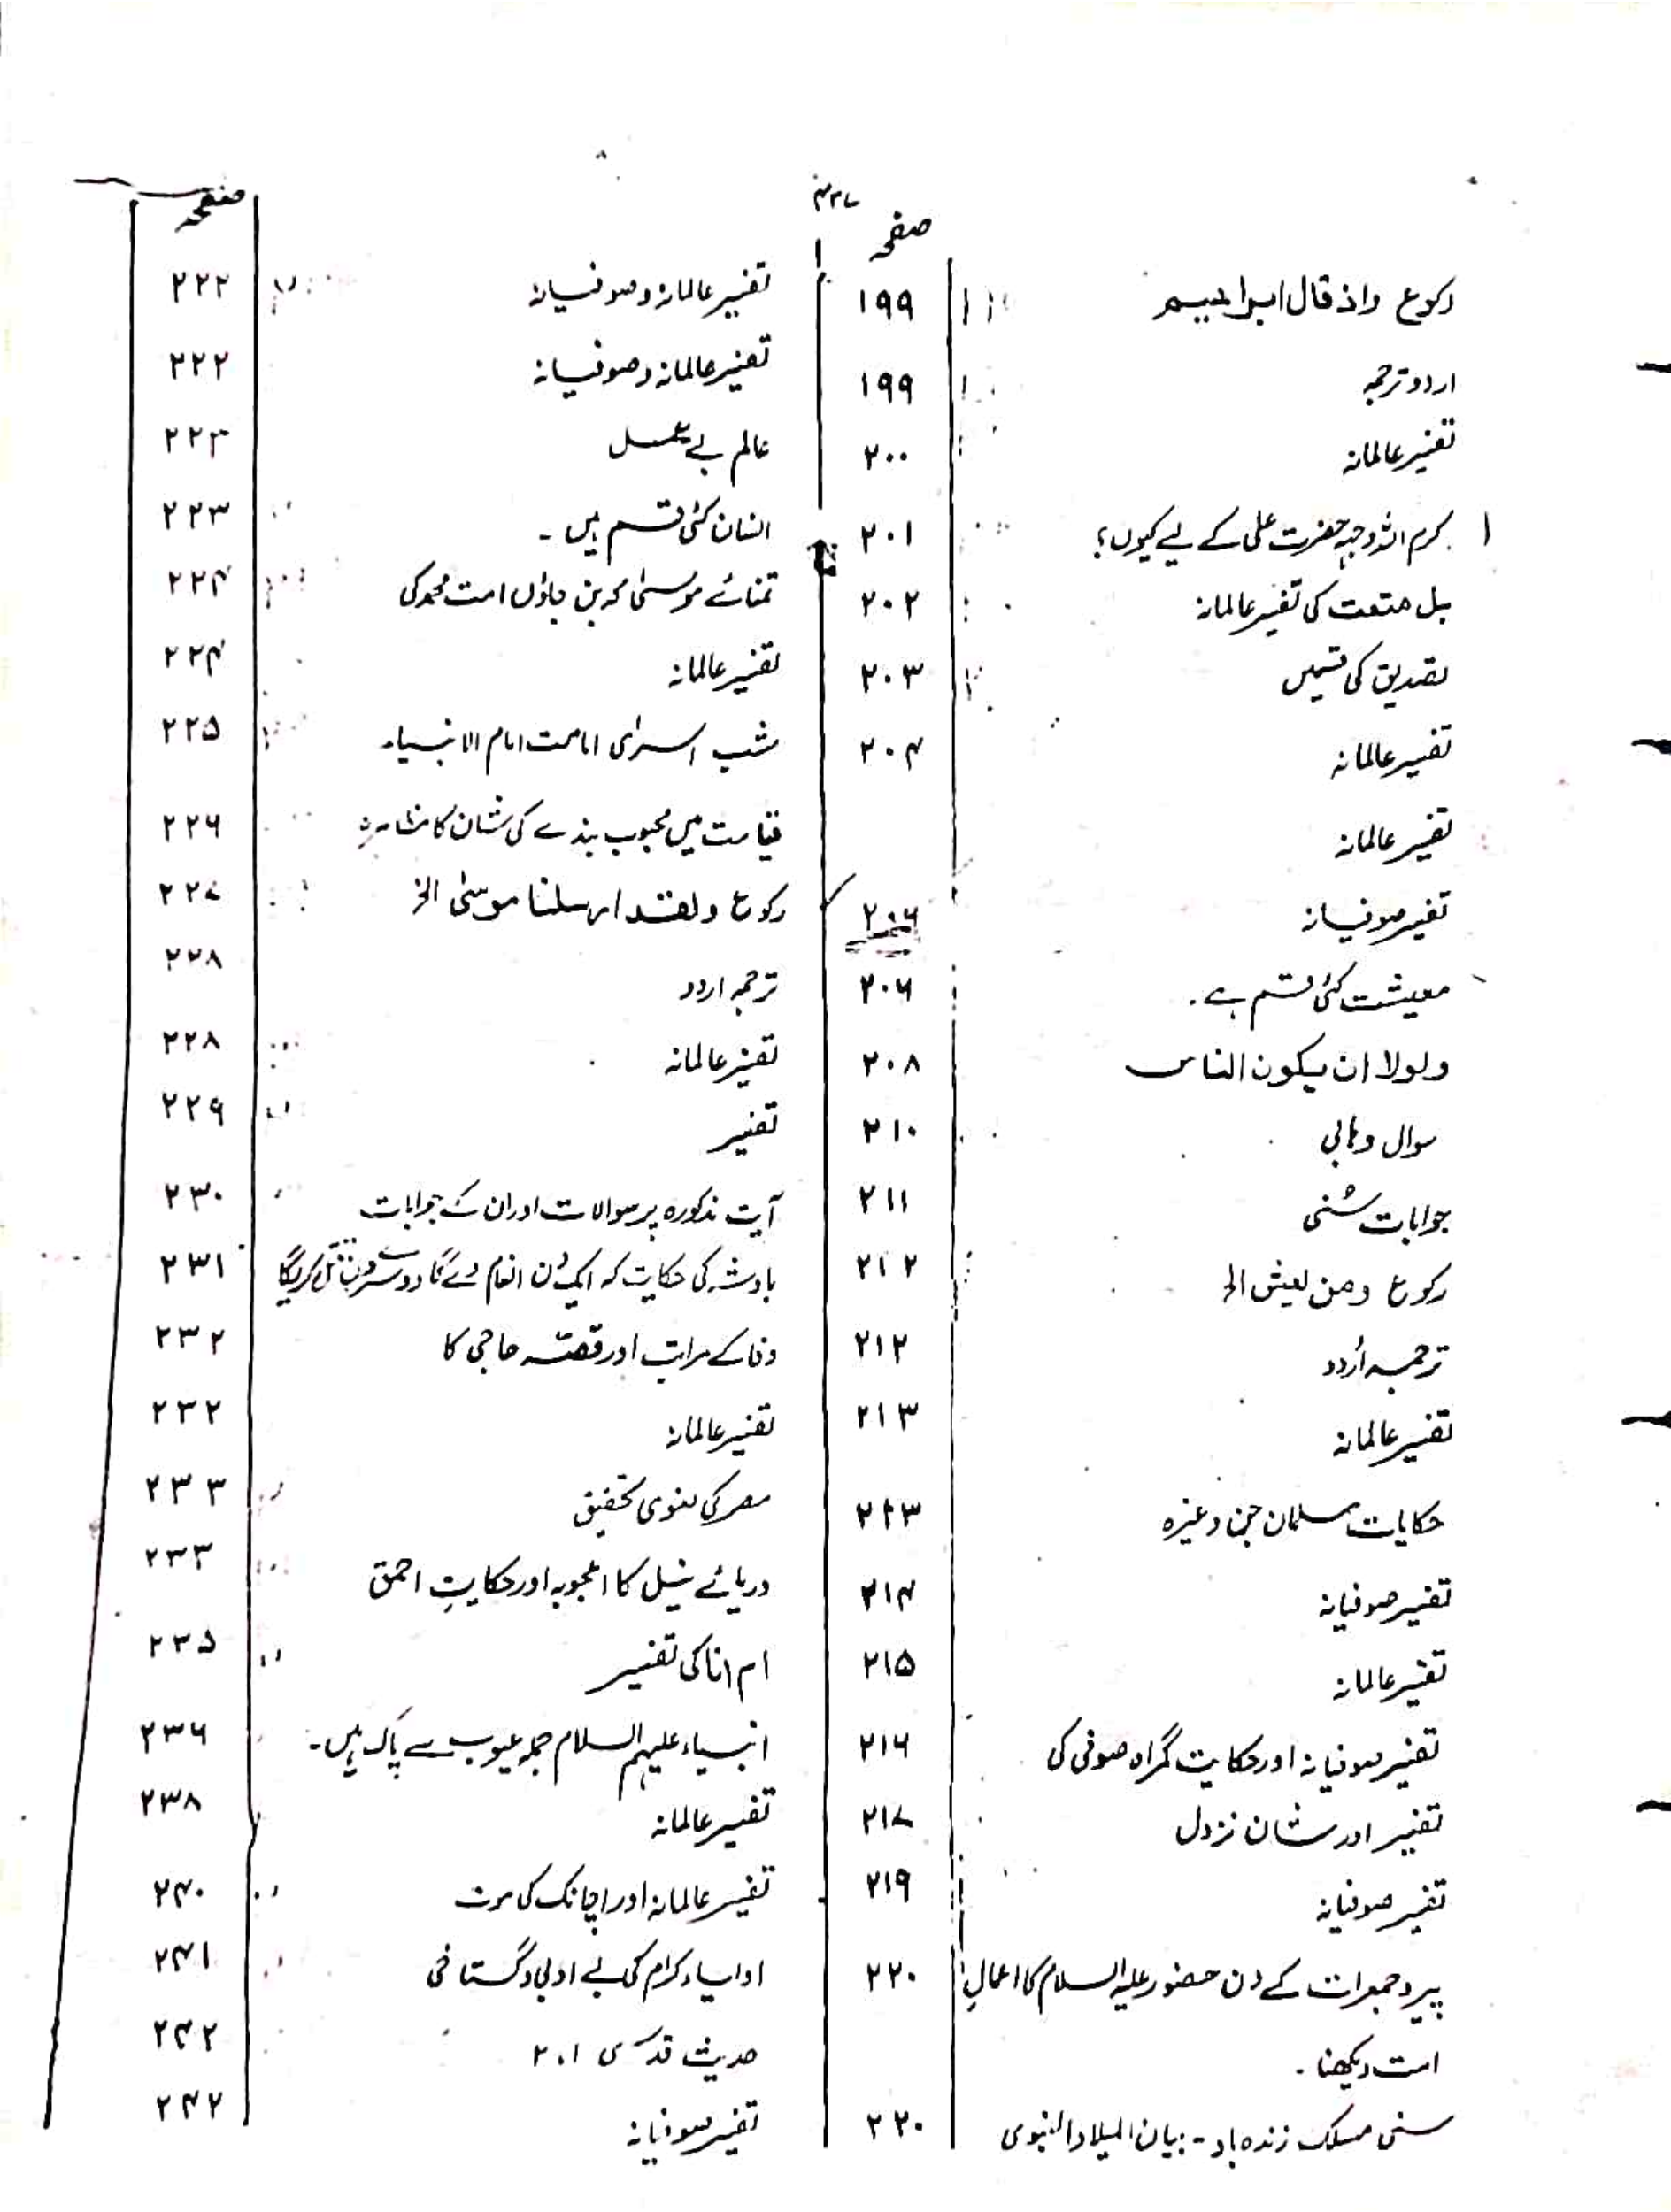 ۴۳۷
صفحہ
رکوع واذ قال ابراھیم ۱۹۹
اردو ترجمہ ۱۹۹
تفسیر عالمانہ ۲۰۰
کرم اللہ وجہہ حضرت علی کے لیے کیوں؟ ۲۰۱
بل متعت کی تفسیر عالمانہ ۲۰۲
تصدیق کی قسمیں ۲۰۳
تفسیر عالمانہ ۲۰۴
تفسیر عالمانہ
تفسیر صوفیانہ ۲۰۶
معیشت کئی قسم ہے۔ ۲۰۶
ولولا ان یکون الناس ۲۰۸
سوال وہابی ۲۱۰
جوابات سُنی ۲۱۱
رکوع ومن یعش الخ ۲۱۲
ترجمہ اُردو ۲۱۲
تفسیر عالمانہ ۲۱۳
حکایات مسلمان جن وغیرہ ۲۱۳
تفسیر صوفیانہ ۲۱۴
تفسیر عالمانہ ۲۱۵
تفسیر صوفیانہ اور حکایت گمراہ صوفی کی ۲۱۶
تفسیر اور شان نزول ۲۱۷
تفسیر صوفیانہ ۲۱۹
پیر و جمعرات کے دن حضور علیہ السلام کا اعمالِ ۲۲۰
امت دیکھنا۔
سنی مسلک زندہ باد - بیان المیلاد النبوی ۲۲۰
صفحہ
تفسیر عالمانہ و صوفیانہ ۲۲۲
تفسیر عالمانہ و صوفیانہ ۲۲۲
عالم بے عمل ۲۲۳
انسان کئی قسم ہیں۔ ۲۲۳
تمنائے موسیٰ کہ بن جاؤں امت محمد کی ۲۲۴
تفسیر عالمانہ ۲۲۴
شب اسریٰ امامت امام الانبیاء ۲۲۵
قیامت میں محبوب بندے کی شان کا نظارہ ۲۲۶
رکوع ولقد ارسلنا موسیٰ الخ ۲۲۷
ترجمہ اردو ۲۲۸
تفسیر عالمانہ ۲۲۸
تفسیر ۲۲۹
آیت مذکورہ پر سوالات اور ان کے جوابات ۲۳۰
بادشہ کی حکایت کہ ایک دن انعام دے گا دوسرے دن قتل کریگا ۲۳۱
وفا کے مراتب اور قصّہ حاجی کا ۲۳۲
تفسیر عالمانہ ۲۳۲
مصر کی لغوی تحقیق ۲۳۳
دریائے نیل کا اعجوبہ اور حکایتِ احمق ۲۳۳
ام انا کی تفسیر ۲۳۵
انبیاء علیہم السلام جملہ عیوب سے پاک ہیں۔ ۲۳۶
تفسیر عالمانہ ۲۳۸
تفسیر عالمانہ اور اچانک کی موت ۲۴۰
اولیاء کرام کی بے ادبی و گستاخی ۲۴۱
حدیث قدسی ۲،۱ ۲۴۲
تفسیر صوفیانہ ۲۴۲